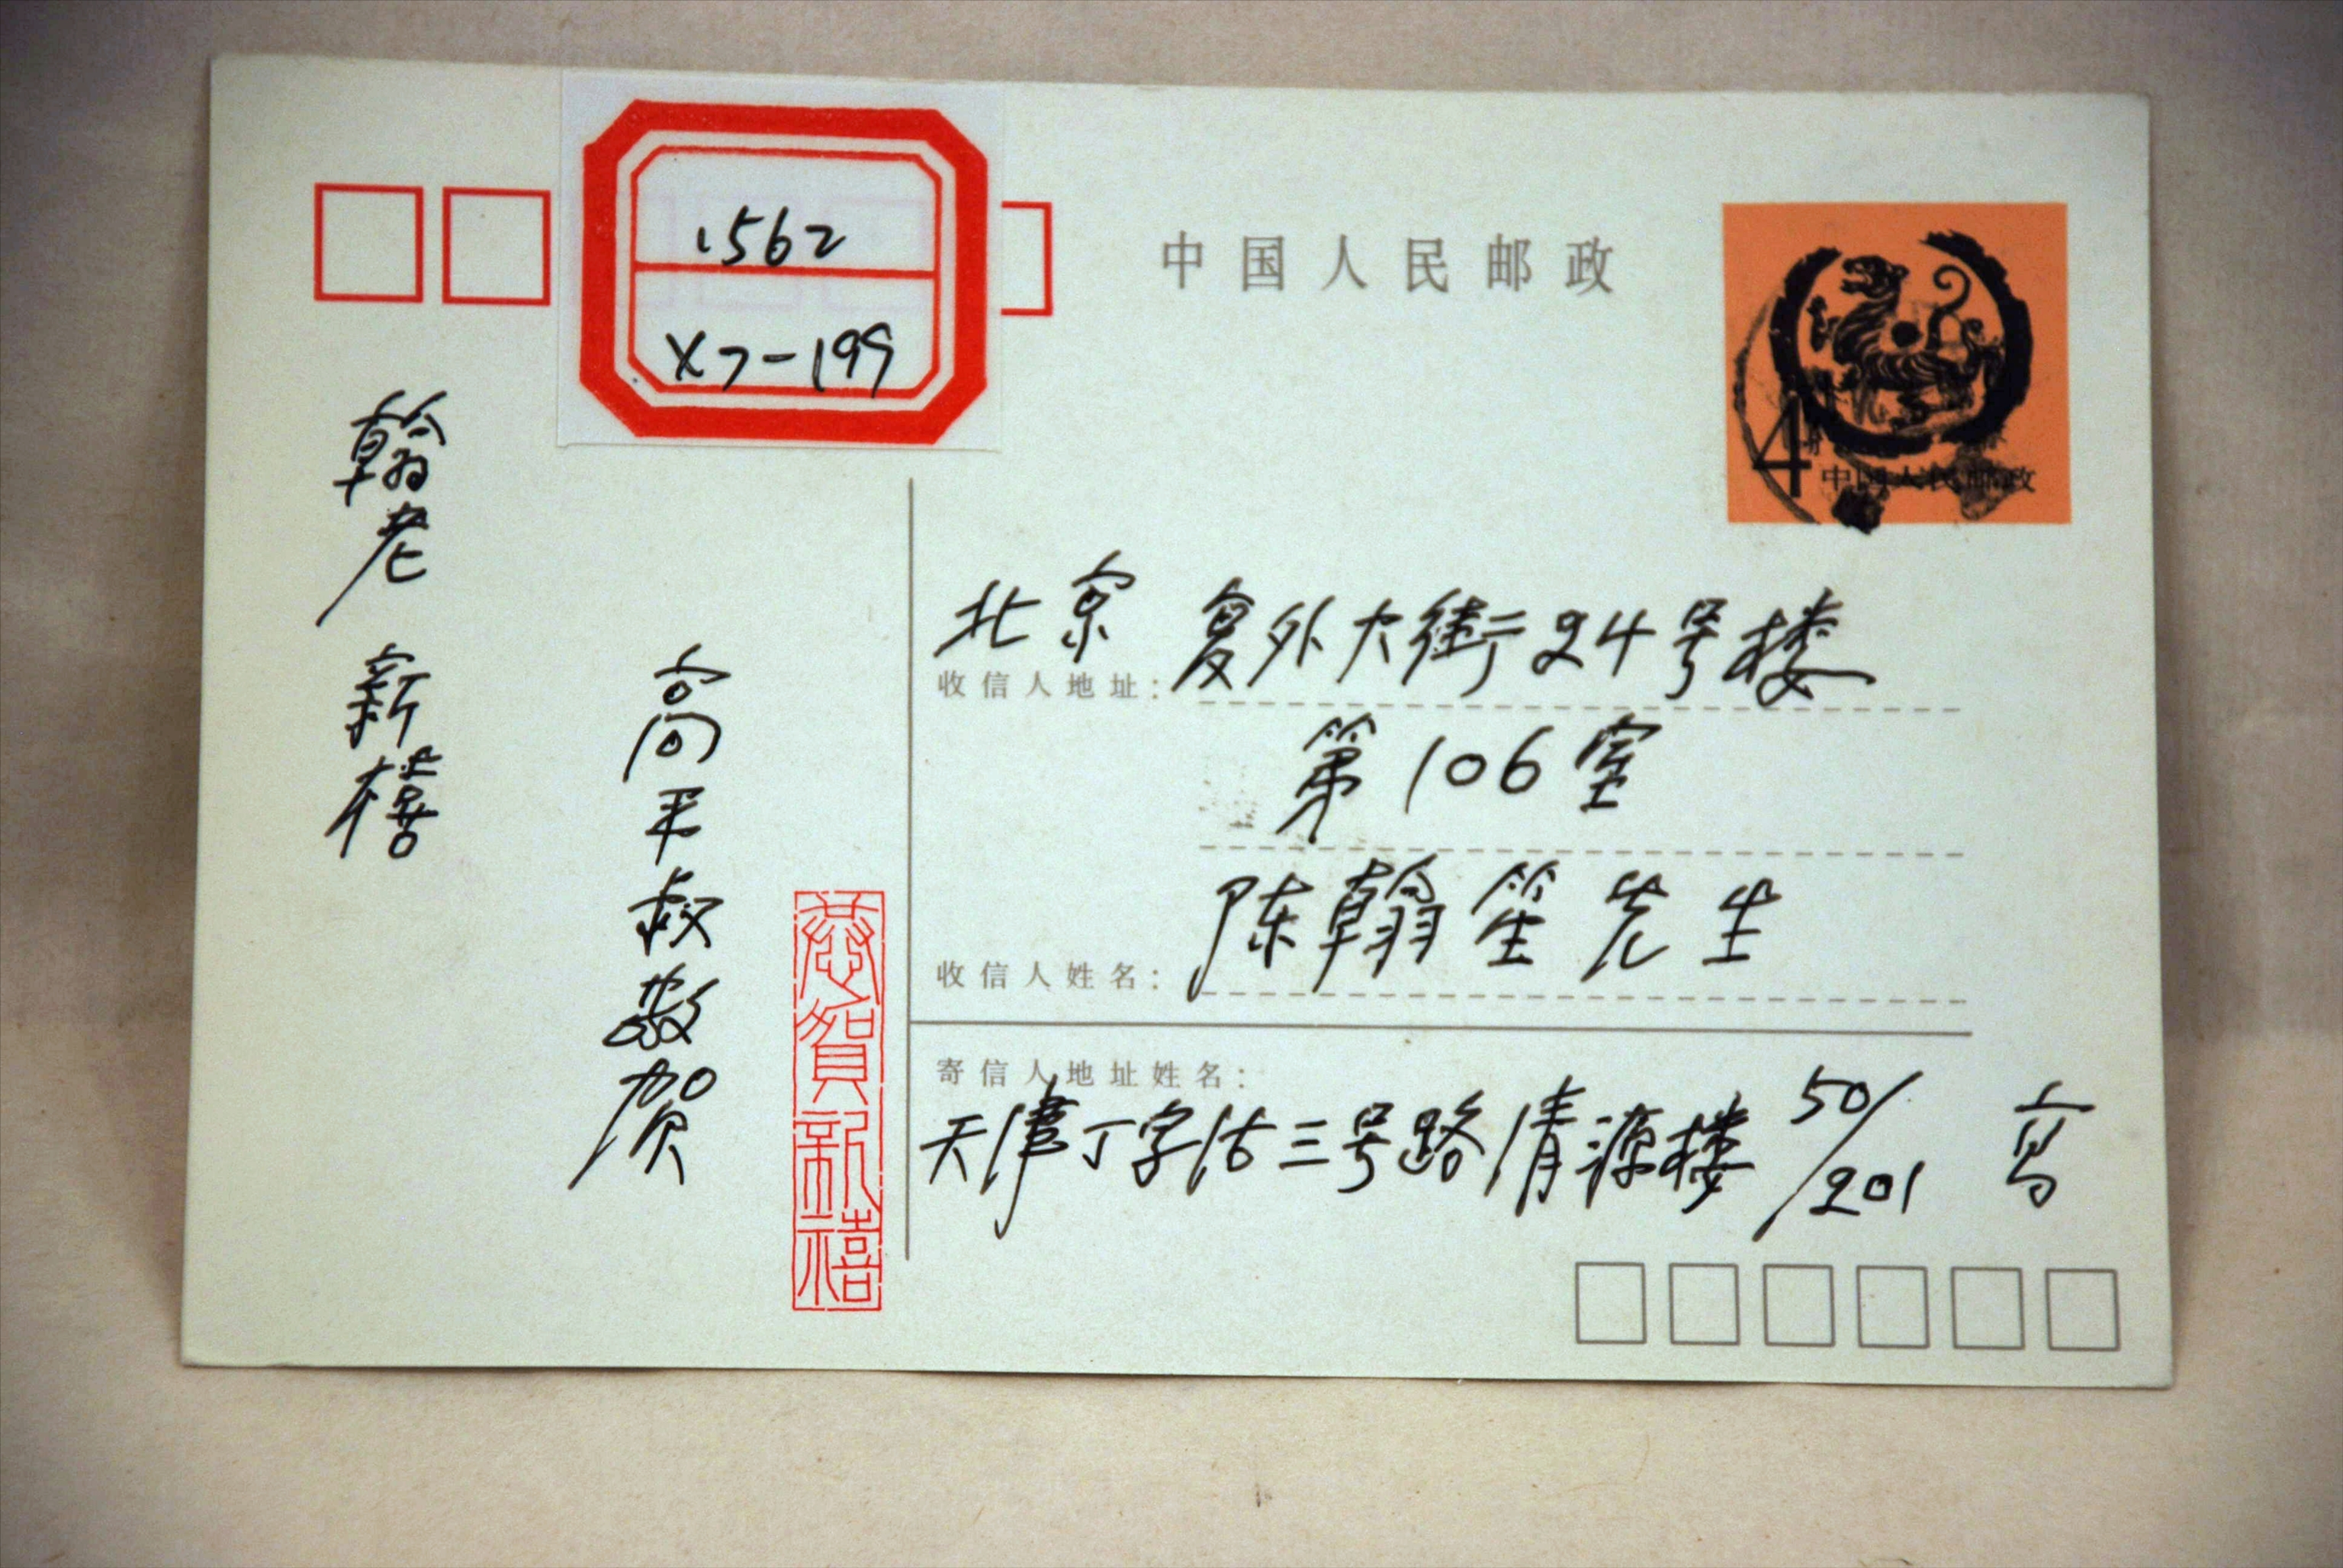 1562
X7-199
中国人民邮政
4分
中国人民邮政
翰老 新禧
高平叔敬贺
恭賀新禧
北京 复外大街24号楼
收信人地址：
第106室
陈翰笙先生
收信人姓名：
寄信人地址姓名：
天津丁字沽三号路清源楼50/201 高